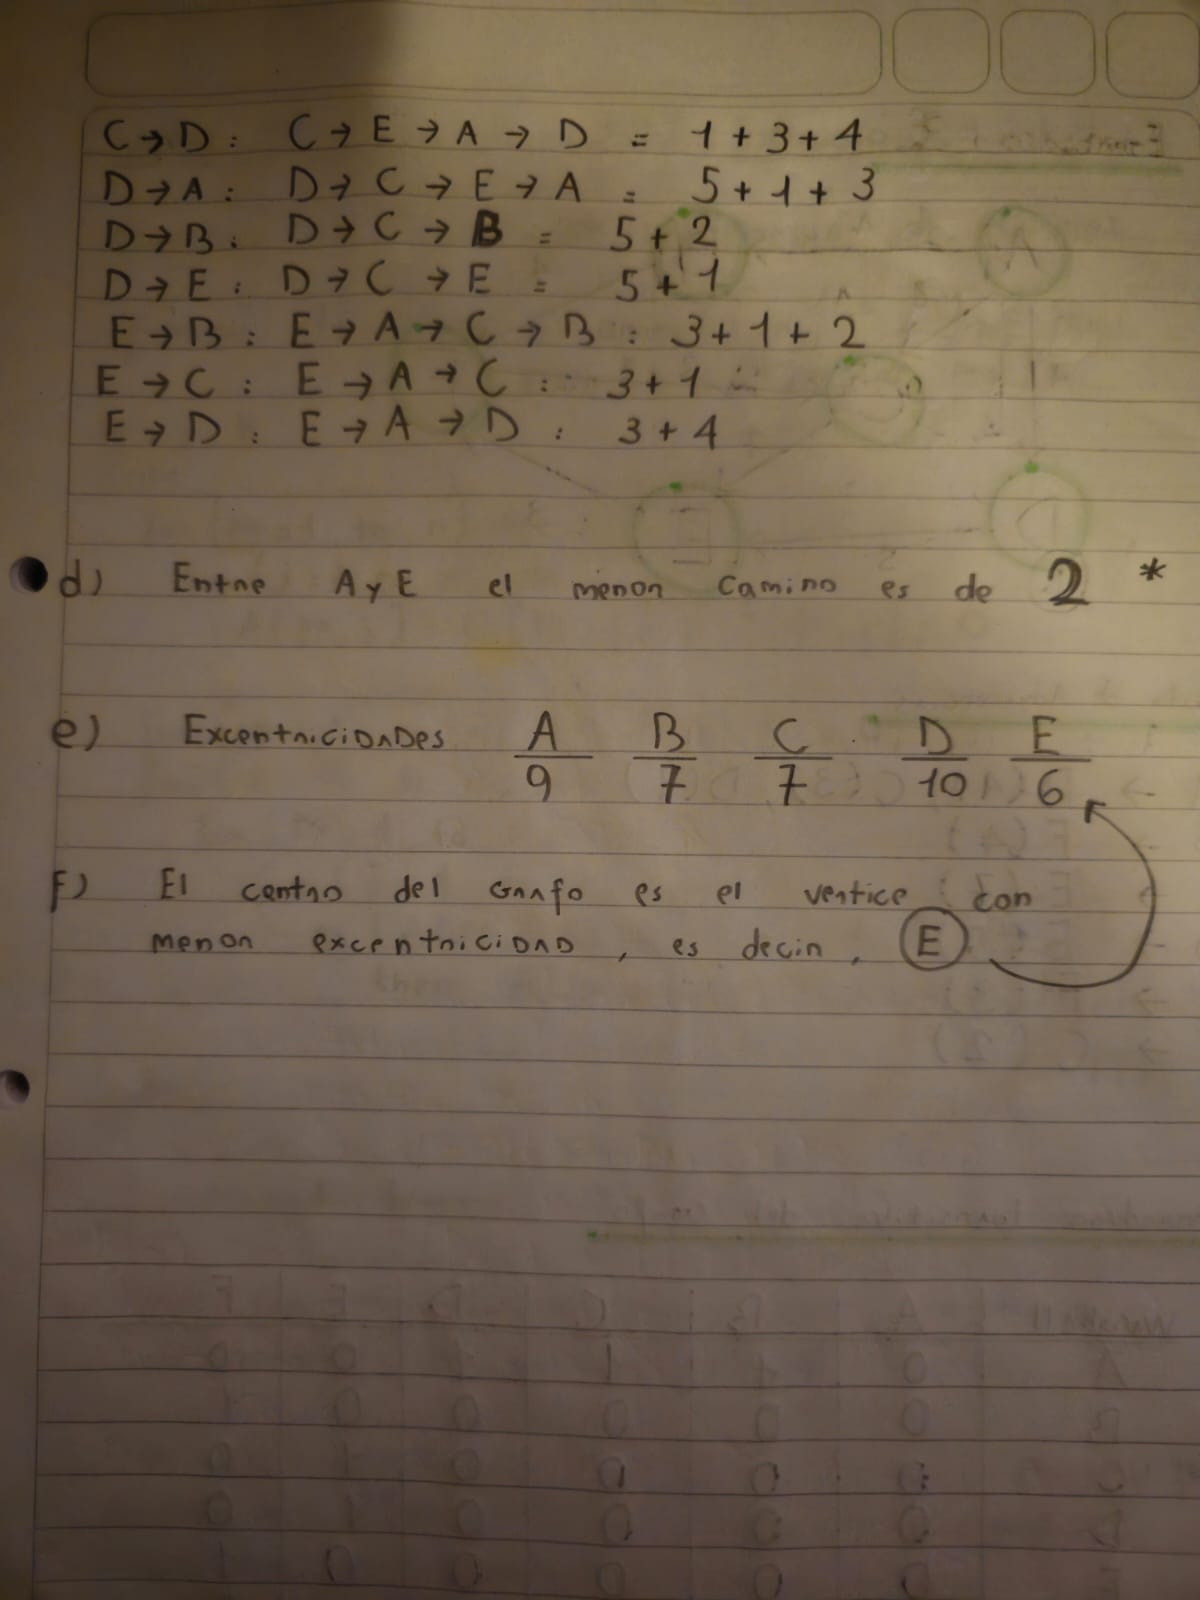 C → D : C → E → A → D = 1 + 3 + 4
D → A : D → C → E → A = 5 + 1 + 3
D → B : D → C → B = 5 + 2
D → E : D → C → E = 5 + 1
E → B : E → A → C → B : 3 + 1 + 2
E → C : E → A → C : 3 + 1
E → D : E → A → D : 3 + 4
d) Entre A y E el menor camino es de 2 *
e) Excentricidades A B C D E
9 7 7 10 6
F) El centro del Grafo es el vertice con
menor excentricidad, es decir, E